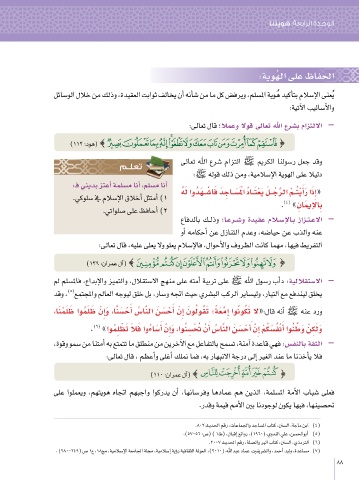 الوحدة الرابعة: هويتنا
الحفاظ على الهُوية:
يُعنى الإسلام بتأكيد هُوية المسلم، ويرفض كل ما من شأنه أن يخالف ثوابت العقيدة، وذلك من خلال الوسائل
والأساليب الآتية:
– الالتزام بشرع الله تعالى قولا وعملا: قال تعالى:
﴿ فَاسْتَقِمْ كَمَا أُمِرْتَ وَمَنْ تَابَ مَعَكَ وَلَا تَطْغَوْا إِنَّهُ بِمَا تَعْمَلُونَ بَصِيرٌ ﴾ (هود: ١١٢)
وقد جعل رسولنا الكريم ﷺ التزام شرع الله تعالى
دليلا على الهوية الإسلامية، ومن ذلك قوله ﷺ:
«إذا رأيتم الرجل يعتاد المساجد فاشهدوا له
بالإيمان» [٤].
تعلم
أنا مسلم، أنا مسلمة أعتز بديني فـ:
(١) أمتثل أخلاق الإسلام في سلوكي.
(٢) أحافظ على صلواتي.
– الاعتزاز بالإسلام عقيدة وشرعا: وذلك بالدفاع
عنه والذب عن حياضه، وعدم التنازل عن أحكامه أو
التفريط فيها، مهما كانت الظروف والأحوال، فالإسلام يعلو ولا يعلى عليه، قال تعالى:
﴿ وَلَا تَهِنُوا وَلَا تَحْزَنُوا وَأَنْتُمُ الْأَعْلَوْنَ إِنْ كُنْتُمْ مُؤْمِنِينَ ﴾ (آل عمران: ١٣٩)
– الاستقلالية: دأب رسول الله ﷺ على تربية أمته على منهج الاستقلال، والتميز والإبداع، فالمسلم لم
يخلق ليندفع مع التيار، وليساير الركب البشري حيث اتجه وسار، بل خلق ليوجه العالم والمجتمع [٥]، وقد
ورد عنه ﷺ أنه قال: «لا تكونوا إمعة؛ تقولون إن أحسن الناس أحسنا، وإن ظلموا ظلمنا،
ولكن وطنوا أنفسكم إن أحسن الناس أن تحسنوا، وإن أساءوا فلا تظلموا» [٦].
– الثقة بالنفس: فهي قاعدة آمنة، تسمح بالتفاعل مع الآخرين من منطلق ما تتمتع به أمتنا من سمو وقوة،
فلا يأخذنا ما عند الغير إلى درجة الانبهار به، فما نملك أغلى وأعظم، قال تعالى:
﴿ كُنْتُمْ خَيْرَ أُمَّةٍ أُخْرِجَتْ لِلنَّاسِ ﴾ (آل عمران: ١١٠)
فعلى شباب الأمة المسلمة، الذين هم عمادها وفرسانها، أن يدركوا واجبهم اتجاه هويتهم، ويعملوا على
تحصينها، فبها يكون لوجودنا بين الأمم قيمة وقدر.
(٤) ابن ماجة، السنن، كتاب المساجد والجماعات، رقم الحديث ٨٠٢.
(٦) الترمذي، السنن، كتاب البر والصلة، رقم الحديث ٢٠٠٧.
٨٨